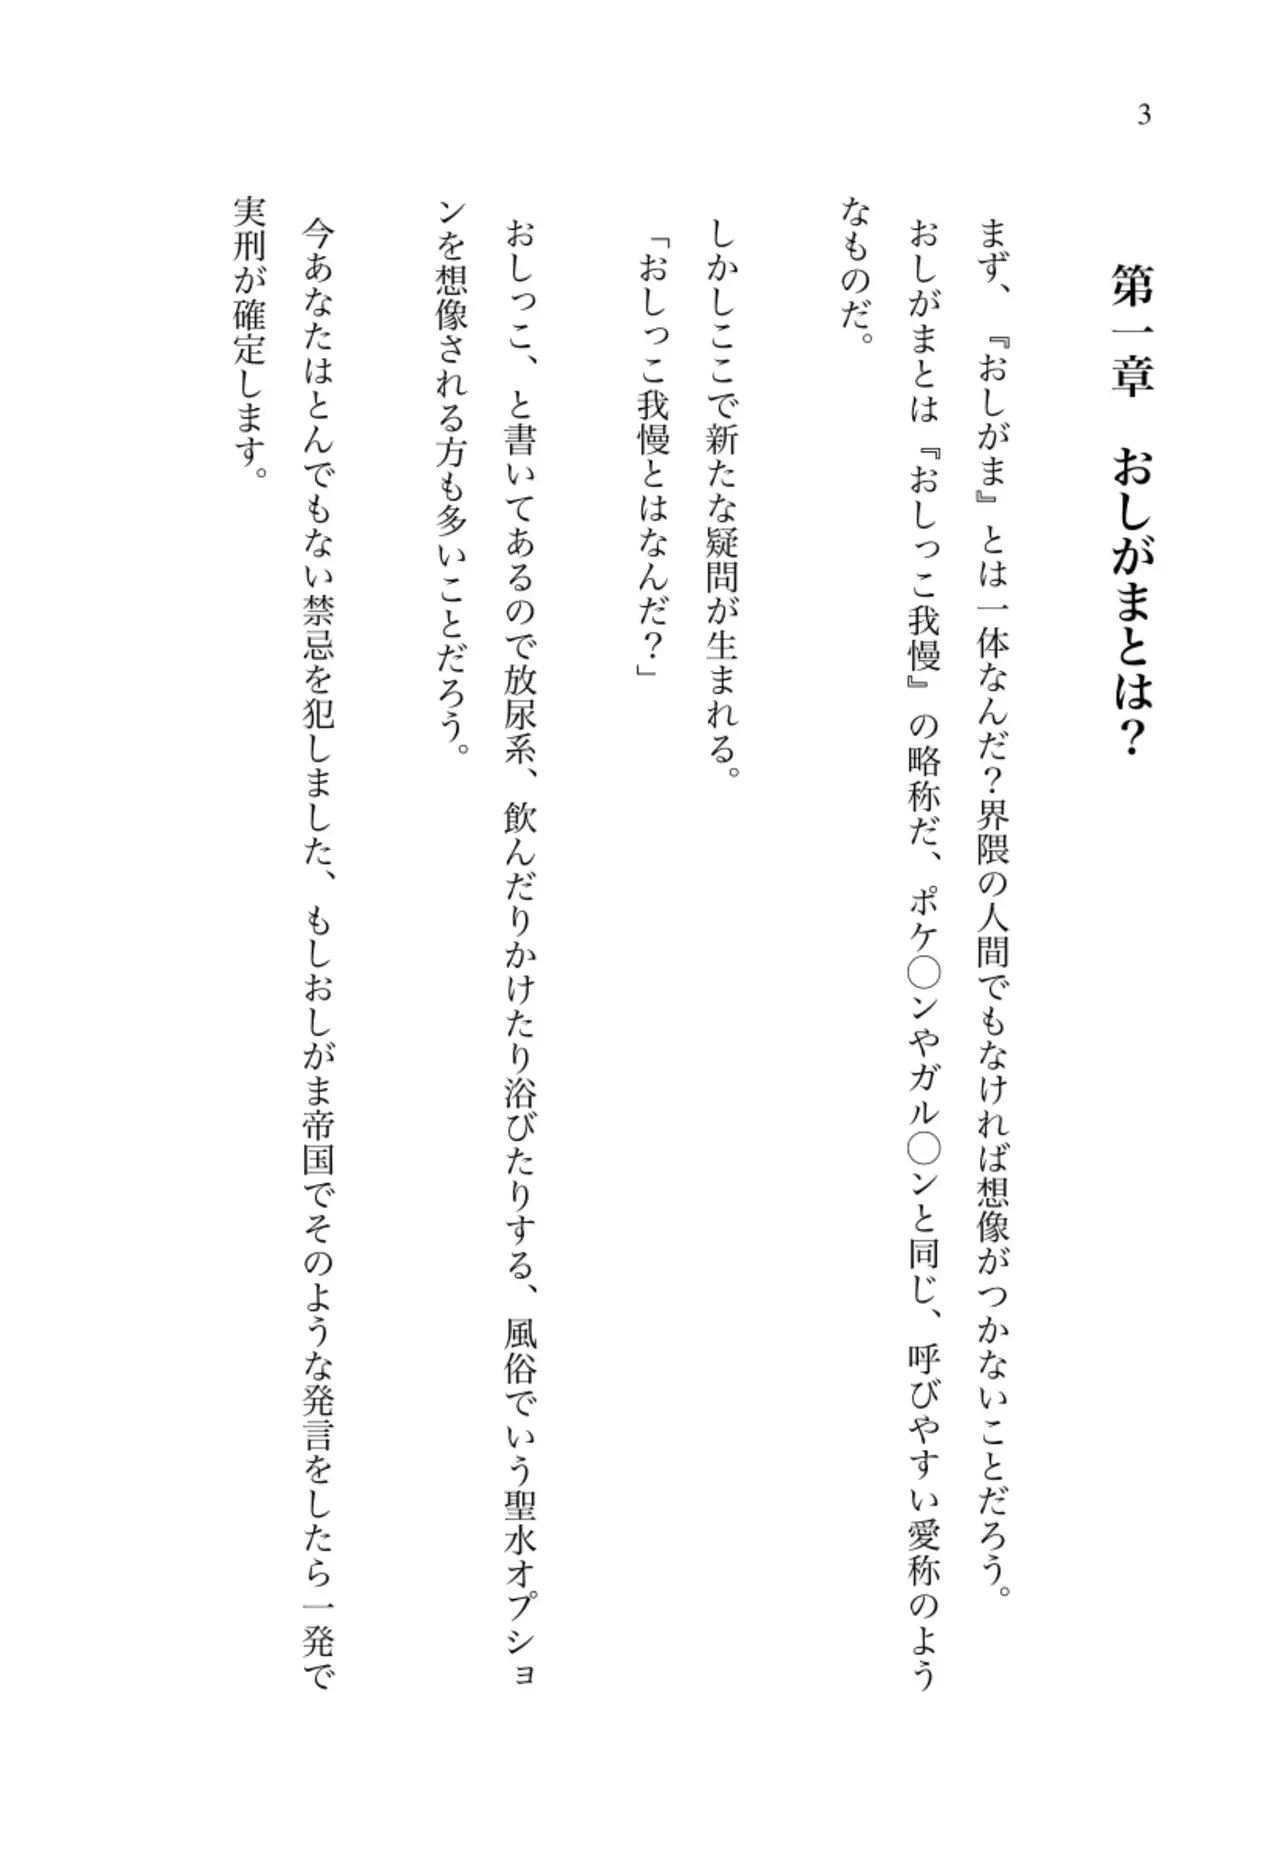 3
第一章　おしがまとは？
まず、『おしがま』とは一体なんだ？界隈の人間でもなければ想像がつかないことだろう。
おしがまとは『おしっこ我慢』の略称だ、ポケ◯ンやガル◯ンと同じ、呼びやすい愛称のよう
なものだ。
しかしここで新たな疑問が生まれる。
「おしっこ我慢とはなんだ？」
おしっこ、と書いてあるので放尿系、飲んだりかけたり浴びたりする、風俗でいう聖水オプショ
ンを想像される方も多いことだろう。
今あなたはとんでもない禁忌を犯しました、もしおしがま帝国でそのような発言をしたら一発で
実刑が確定します。